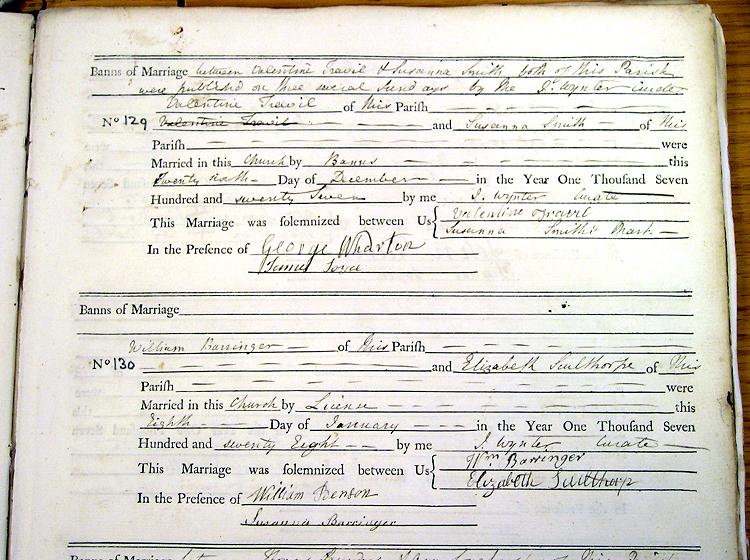 Banns of Marriage between Valentine Travil & Susanna Smith both of this Parish
were published on three several Sundays by Me J. Wynter Curate
Valentine Travil of this Parish
No 129 Valentine Travil and Susanna Smith of this
Parish were
Married in this Church by Banns this
twenty sixth Day of December in the Year One Thousand Seven
Hundred and seventy Seven by me J. Wynter Curate
This Marriage was solemnized between Us { Valentine Travil
Susanna Smith's Mark
In the Presence of George Wharton
Samel Joya
Banns of Marriage
William Barringer of this Parish
No 130 and Elizabeth Sculthorpe of this
Parish were
Married in this Church by License this
Eighth Day of January in the Year One Thousand Seven
Hundred and seventy Eight by me J. Wynter Curate
This Marriage was solemnized between Us { Wm Barringer
Elizabeth Sculthorp
In the Presence of William Benson
Susanna Barringer
Banns of Marriage